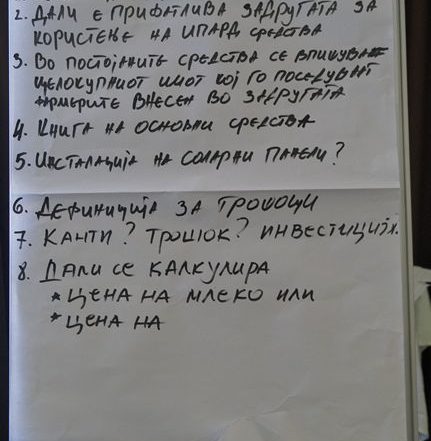 2. ДАЛИ Е ПРИФАТЛИВА ЗАДРУГАТА ЗА
КОРИСТЕЊЕ НА ИПАРД СРЕДСТВА
3. ВО ПОСТОЈАНИТЕ СРЕДСТВА СЕ ВПИШУВА
ЦЕЛОКУПНИОТ ИМОТ КОЈ ГО ПОСЕДУВААТ
ФАРМЕРИТЕ ВНЕСЕН ВО ЗАДРУГАТА
4. КНИГА НА ОСНОВНИ СРЕДСТВА
5. ИНСТАЛАЦИЈА НА СОЛАРНИ ПАНЕЛИ?
6. ДЕФИНИЦИЈА ЗА ТРОШОЦИ
7. КАНТИ? ТРОШОК? ИНВЕСТИЦИЈА.
8. ДАЛИ СЕ КАЛКУЛИРА
* ЦЕНА НА МЛЕКО ИЛИ
* ЦЕНА НА